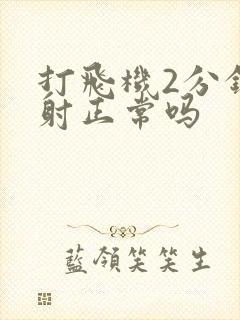 打飛機2分鐘
射正常吗
藍領笑笑生